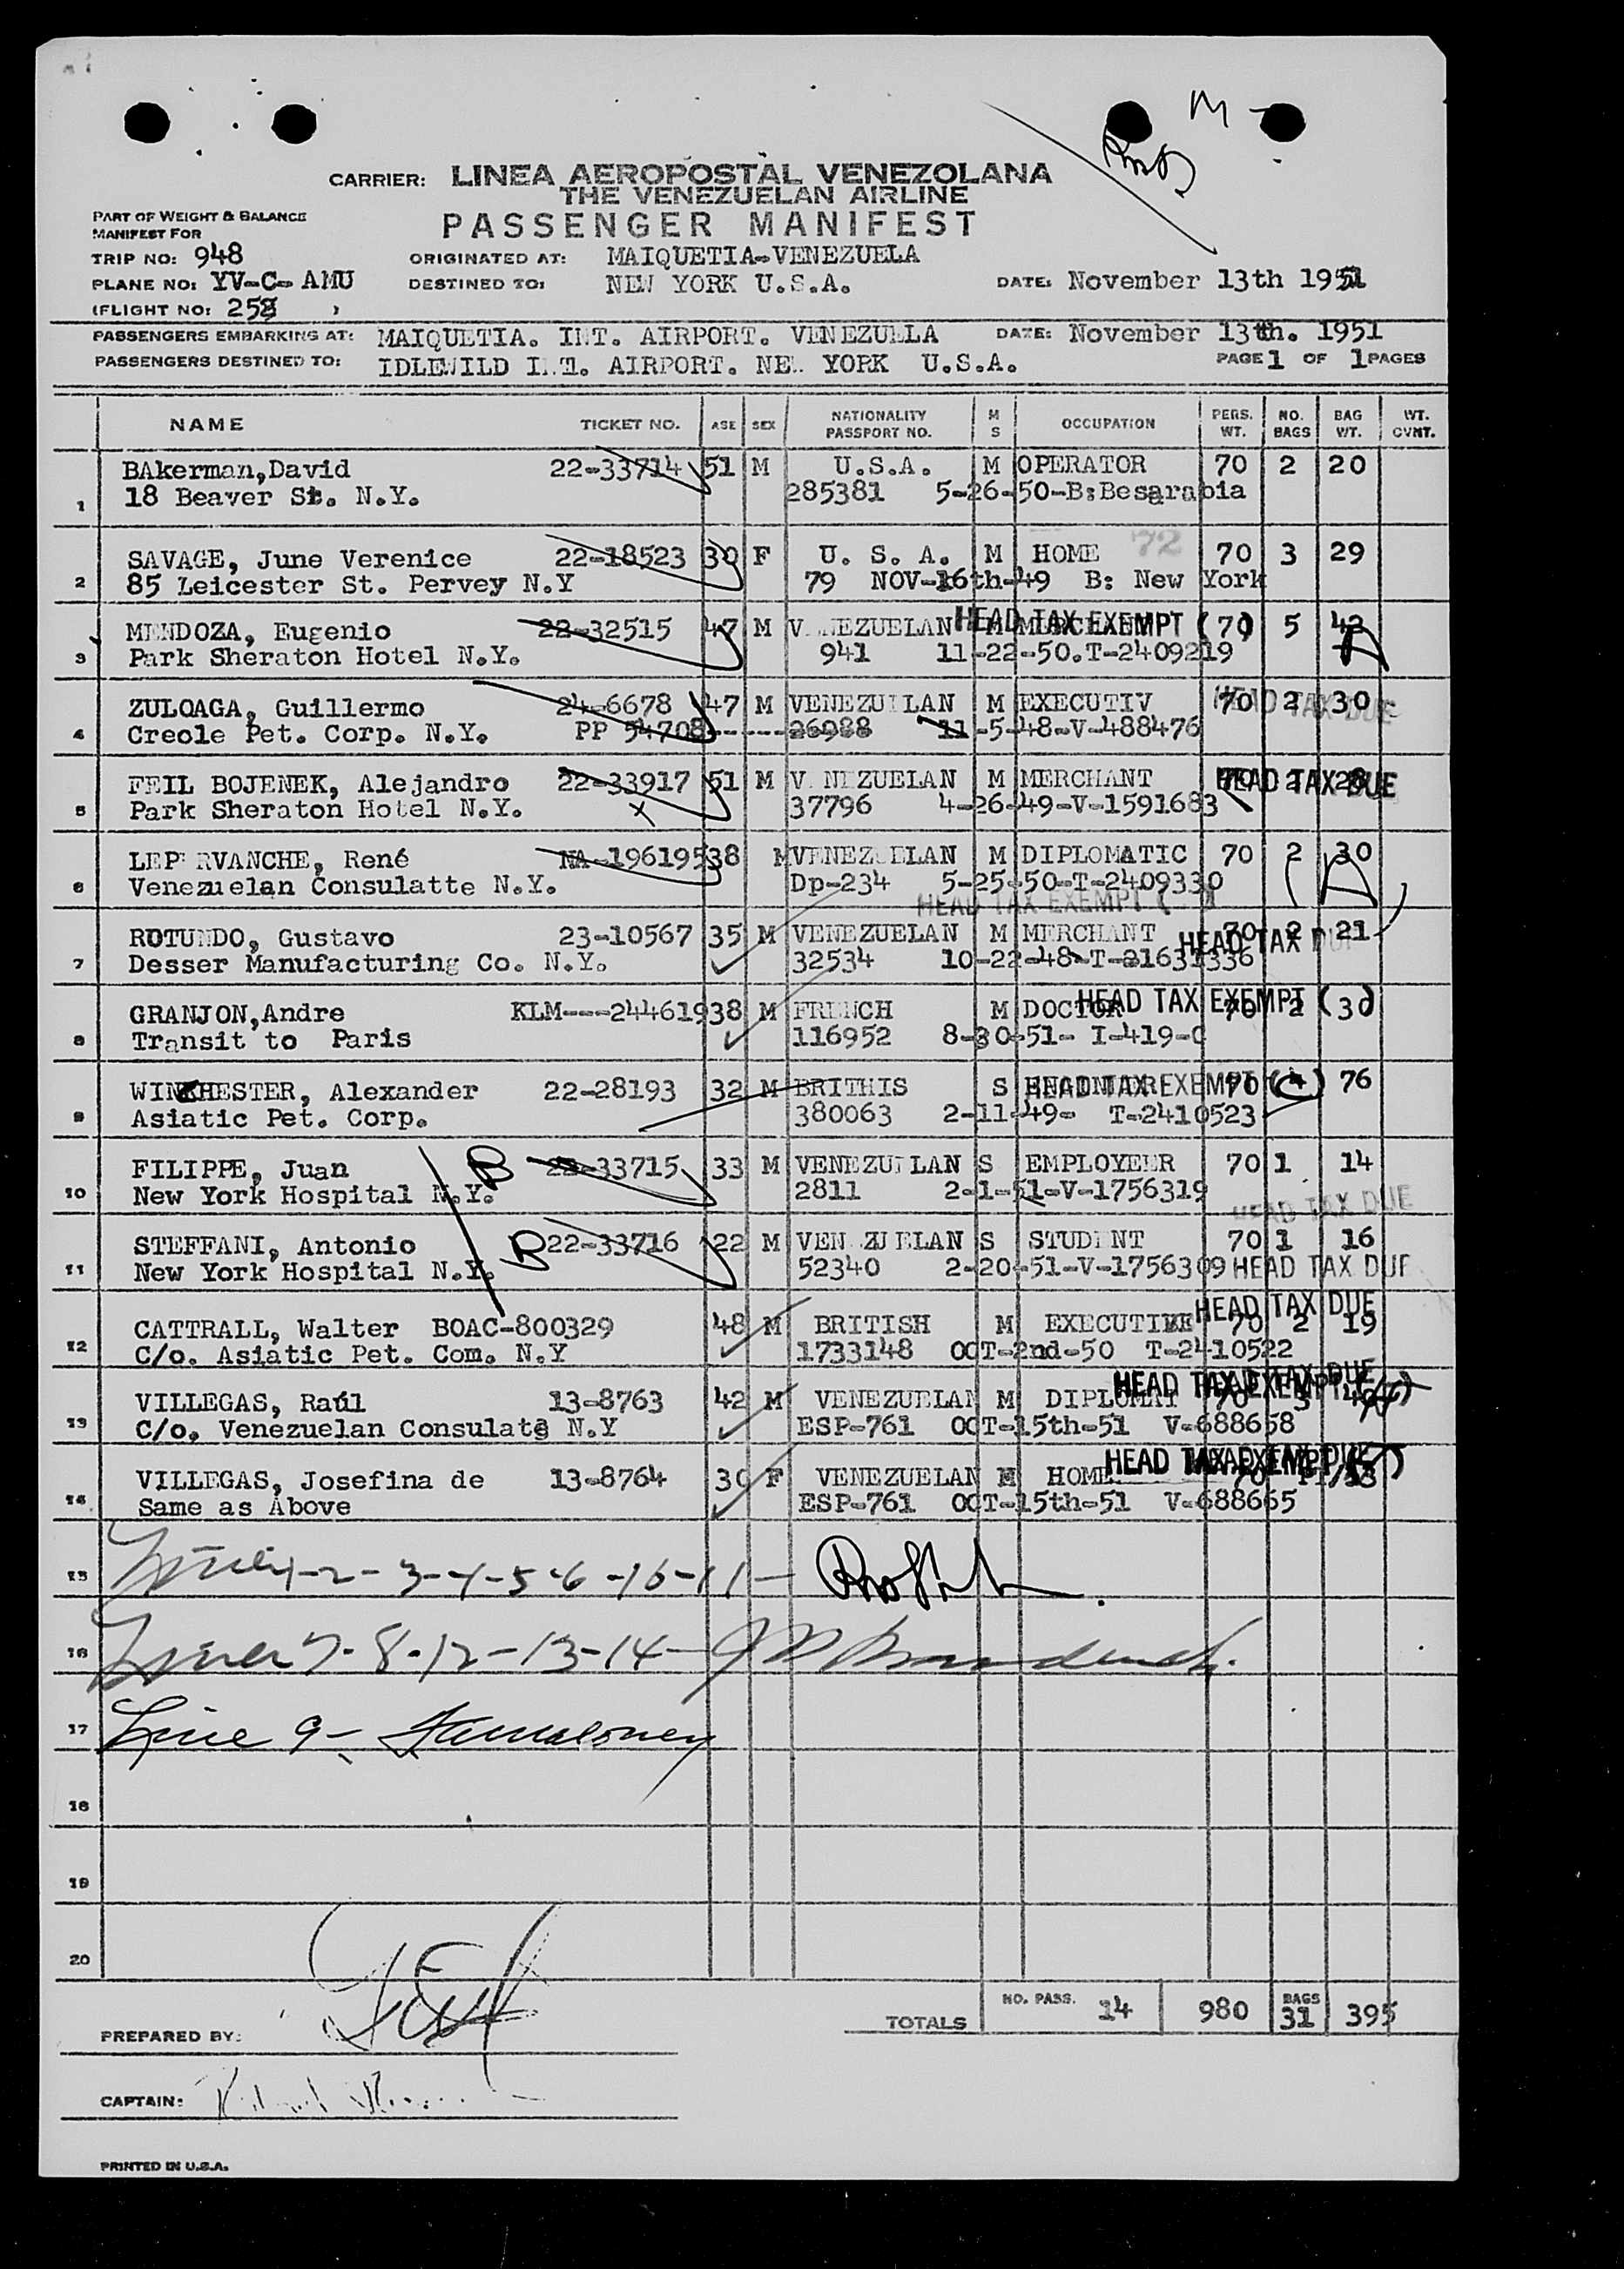 CARRIER: LINEA AEROPOSTAL VENEZOLANA
THE VENEZUELAN AIRLINE
PART OF WEIGHT & BALANCE
MANIFEST FOR
PASSENGER MANIFEST
TRIP NO: 948 ORIGINATED AT: MAIQUETIA-VENEZUELA
PLANE NO: YV-C-AMU DESTINED TO: NEW YORK U.S.A. DATE: November 13th 1951
(FLIGHT NO: 258 )
PASSENGERS EMBARKING AT: MAIQUETIA. INT. AIRPORT. VENEZUELA DATE: November 13th. 1951
PASSENGERS DESTINED TO: IDLEWILD INT. AIRPORT. NEW YORK U.S.A. PAGE 1 OF 1 PAGES
NAME TICKET NO. AGE SEX NATIONALITY PASSPORT NO. M S OCCUPATION PERS. WT. NO. BAGS BAG WT. WT. CVNT.
BAkerman,David 22-33714 51 M U.S.A. M OPERATOR 70 2 20
1 18 Beaver St. N.Y. 285381 5-26-50-B:Besarabia
SAVAGE, June Verenice 22-18523 30 F U. S. A. M HOME 72 70 3 29
2 85 Leicester St. Pervey N.Y 79 NOV-16th-49 B: New York
MENDOZA, Eugenio 22-32515 47 M VENEZUELAN M HEAD TAX EXEMPT ( 70 ) 5 42
3 Park Sheraton Hotel N.Y. 941 11-22-50.T-2409219
ZULOAGA, Guillermo 24-6678 47 M VENEZUELAN M EXECUTIV 70 2 30 HEAD TAX DUE
4 Creole Pet. Corp. N.Y. PP 54708------26988 11-5-48-V-488476
FEIL BOJENEK, Alejandro 22-33917 51 M VENEZUELAN M MERCHANT 70 2 28 HEAD TAX DUE
5 Park Sheraton Hotel N.Y. X 37796 4-26-49-V-1591683
LEPERVANCHE, René NA-196195 38 M VENEZUELAN M DIPLOMATIC 70 2 30
6 Venezuelan Consulatte N.Y. Dp-234 5-25-50-T-2409330
HEAD TAX EXEMPT ( )
ROTUNDO, Gustavo 23-10567 35 M VENEZUELAN M MERCHANT 70 2 21 HEAD TAX DUE
7 Desser Manufacturing Co. N.Y. 32534 10-22-48-T-21631336
GRANJON,Andre KLM---244619 38 M FRENCH M DOCTOR 70 2 30 HEAD TAX EXEMPT ( )
8 Transit to Paris 116952 8-30-51- I-419-C
WINCHESTER, Alexander 22-28193 32 M BRITHIS S 70 4 76 HEAD TAX EXEMPT ( )
9 Asiatic Pet. Corp. 380063 2-11-49- T-2410523
FILIPPE, Juan 22-33715 33 M VENEZUELAN S EMPLOYEER 70 1 14
10 New York Hospital N.Y. 2811 2-1-51-V-1756319
HEAD TAX DUE
STEFFANI, Antonio 22-33716 22 M VENEZUELAN S STUDENT 70 1 16
11 New York Hospital N.Y. 52340 2-20-51-V-1756309 HEAD TAX DUE
CATTRALL, Walter BOAC-800329 48 M BRITISH M EXECUTIVE 70 2 19 HEAD TAX DUE
12 C/o. Asiatic Pet. Com. N.Y 1733148 OCT-2nd-50 T-2410522
VILLEGAS, Raúl 13-8763 42 M VENEZUELAN M DIPLOMAT 70 HEAD TAX EXEMPT
13 C/o. Venezuelan Consulate N.Y ESP-761 OCT-15th-51 V-688658
VILLEGAS, Josefina de 13-8764 30 F VENEZUELAN M HOME 70 HEAD TAX EXEMPT
14 Same as Above ESP-761 OCT-15th-51 V-688665
15 Lines 1-2-3-4-5-6-10-11-
16 Lines 7-8-12-13-14-
17 Line 9-
18
19
20
TOTALS NO. PASS. 14 980 BAGS 31 395
PREPARED BY:
CAPTAIN:
PRINTED IN U.S.A.